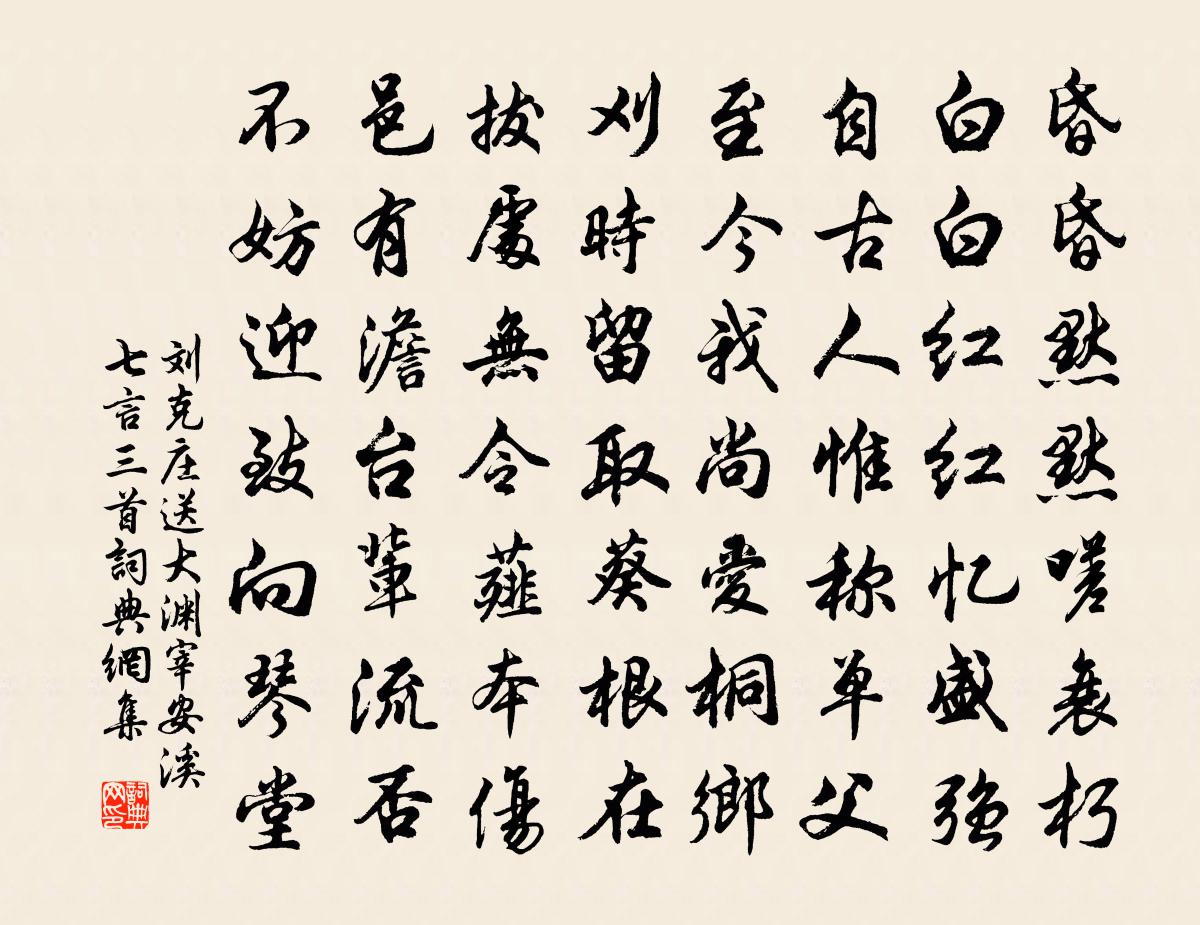 昏昏黙黙嗟衰朽
白白红红忆盛强
自古人惟称单父
至今我尚愛桐鄉
刈時留取葵根在
拔處無令薤本傷
邑有澹台輩流否
不妨迎致向琴堂
刘克庄送大渊宰安溪
七言三首詞典網集
詞典
网印